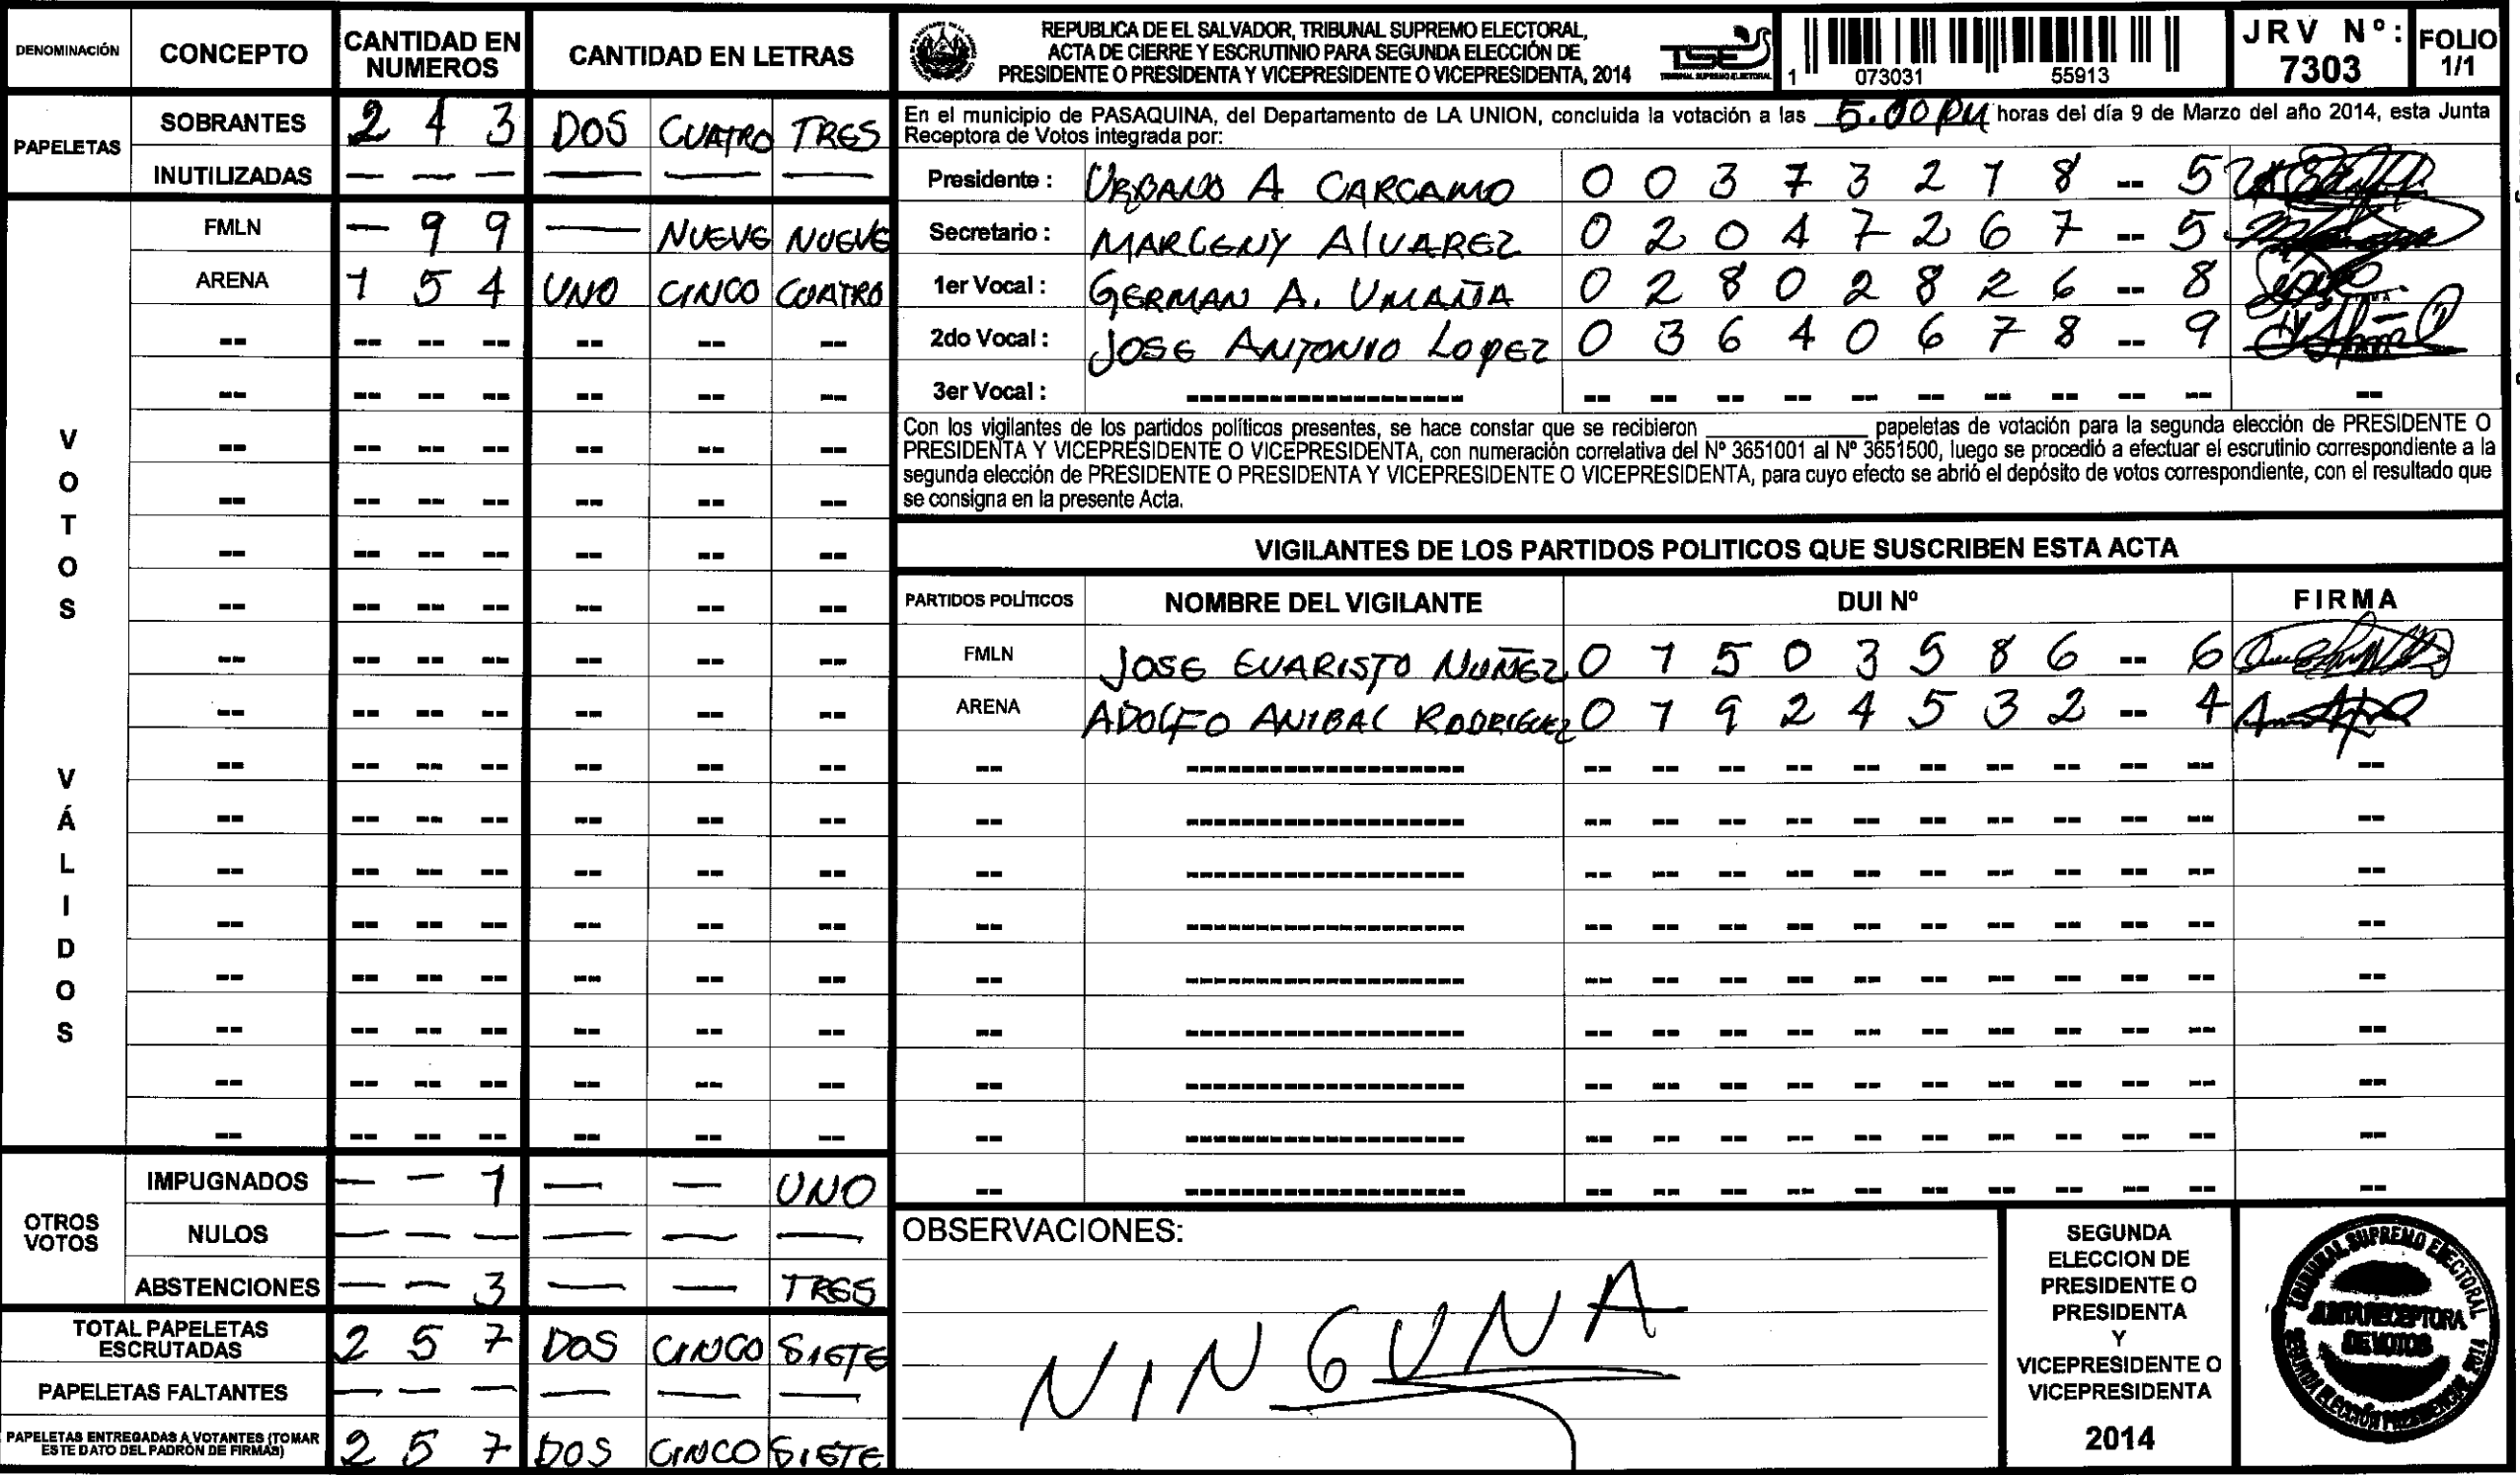 DENOMINACIÓN CONCEPTO CANTIDAD EN NUMEROS CANTIDAD EN LETRAS
PAPELETAS
SOBRANTES 2 4 3 DOS CUATRO TRES
INUTILIZADAS — — — — — —
VOTOS VÁLIDOS
FMLN — 9 9 — NUEVE NUEVE
ARENA 1 5 4 UNO CINCO CUATRO
OTROS VOTOS
IMPUGNADOS — — 1 — — UNO
NULOS — — — — — —
ABSTENCIONES — — 3 — — TRES
TOTAL PAPELETAS ESCRUTADAS 2 5 7 DOS CINCO SIETE
PAPELETAS FALTANTES — — — — — —
PAPELETAS ENTREGADAS A VOTANTES (TOMAR ESTE DATO DEL PADRÓN DE FIRMAS) 2 5 7 DOS CINCO SIETE
REPUBLICA DE EL SALVADOR, TRIBUNAL SUPREMO ELECTORAL,
ACTA DE CIERRE Y ESCRUTINIO PARA SEGUNDA ELECCIÓN DE
PRESIDENTE O PRESIDENTA Y VICEPRESIDENTE O VICEPRESIDENTA, 2014
TSE
TRIBUNAL SUPREMO ELECTORAL
1 073031 55913
JRV Nº: 7303
FOLIO 1/1
En el municipio de PASAQUINA, del Departamento de LA UNION, concluida la votación a las 5.00 PM horas del día 9 de Marzo del año 2014, esta Junta
Receptora de Votos integrada por:
Presidente : URBANO A CARCAMO 0 0 3 7 3 2 1 8 -- 5
Secretario : MARLENY ALVAREZ 0 2 0 4 7 2 6 7 -- 5
1er Vocal : GERMAN A. UMAÑA 0 2 8 0 2 8 2 6 -- 8
2do Vocal : JOSE ANTONIO LOPEZ 0 3 6 4 0 6 7 8 -- 9
3er Vocal : -- -- -- -- -- -- -- -- -- -- --
Con los vigilantes de los partidos políticos presentes, se hace constar que se recibieron ____________ papeletas de votación para la segunda elección de PRESIDENTE O
PRESIDENTA Y VICEPRESIDENTE O VICEPRESIDENTA, con numeración correlativa del Nº 3651001 al Nº 3651500, luego se procedió a efectuar el escrutinio correspondiente a la
segunda elección de PRESIDENTE O PRESIDENTA Y VICEPRESIDENTE O VICEPRESIDENTA, para cuyo efecto se abrió el depósito de votos correspondiente, con el resultado que
se consigna en la presente Acta.
VIGILANTES DE LOS PARTIDOS POLITICOS QUE SUSCRIBEN ESTA ACTA
PARTIDOS POLÍTICOS NOMBRE DEL VIGILANTE DUI Nº FIRMA
FMLN JOSE EVARISTO NUÑEZ 0 1 5 0 3 5 8 6 -- 6
ARENA ADOLFO ANIBAL RODRIGUEZ 0 1 9 2 4 5 3 2 -- 4
OBSERVACIONES:
NINGUNA
SEGUNDA
ELECCION DE
PRESIDENTE O
PRESIDENTA
Y
VICEPRESIDENTE O
VICEPRESIDENTA
2014
TRIBUNAL SUPREMO ELECTORAL
JUNTA RECEPTORA
DE VOTOS
SEGUNDA ELECCIÓN PRESIDENCIAL 2014